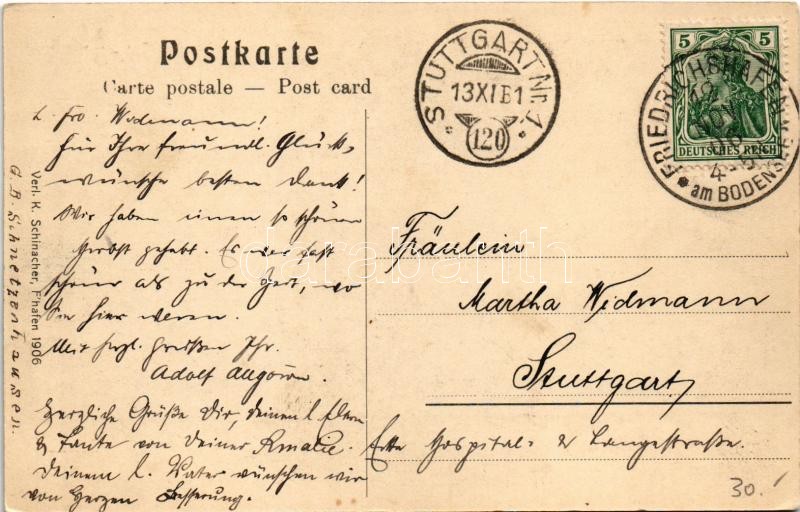 Postkarte
Carte postale — Post card
STUTTGART Nr. 1
13 XI 5-6 1
120
5 5
DEUTSCHES REICH
FRIEDRICHSHAFEN
NOV
4-5
am BODENSEE
L. Fro. Widmann!
Für Ihre freundl. Glück-
wünsche besten Dank!
Wir haben einen so schönen
Herbst gehabt. Es war fast
schöner als zu der Zeit, wo
Sie hier waren.
Mit herzl. Grüßen Ihr
Adolf
Herzliche Grüße Dir, deinen l. Eltern
& Tante von Deiner Amalie.
Deinem l. Vater wünschen wir
von Herzen Besserung.
Verl. K. Schinacher, F'hafen 1906
G. B. Schnetzenhausen.
Fräulein
Martha Widmann
Stuttgart
Ecke Hospital- & Langestraße.
darabanth
30.